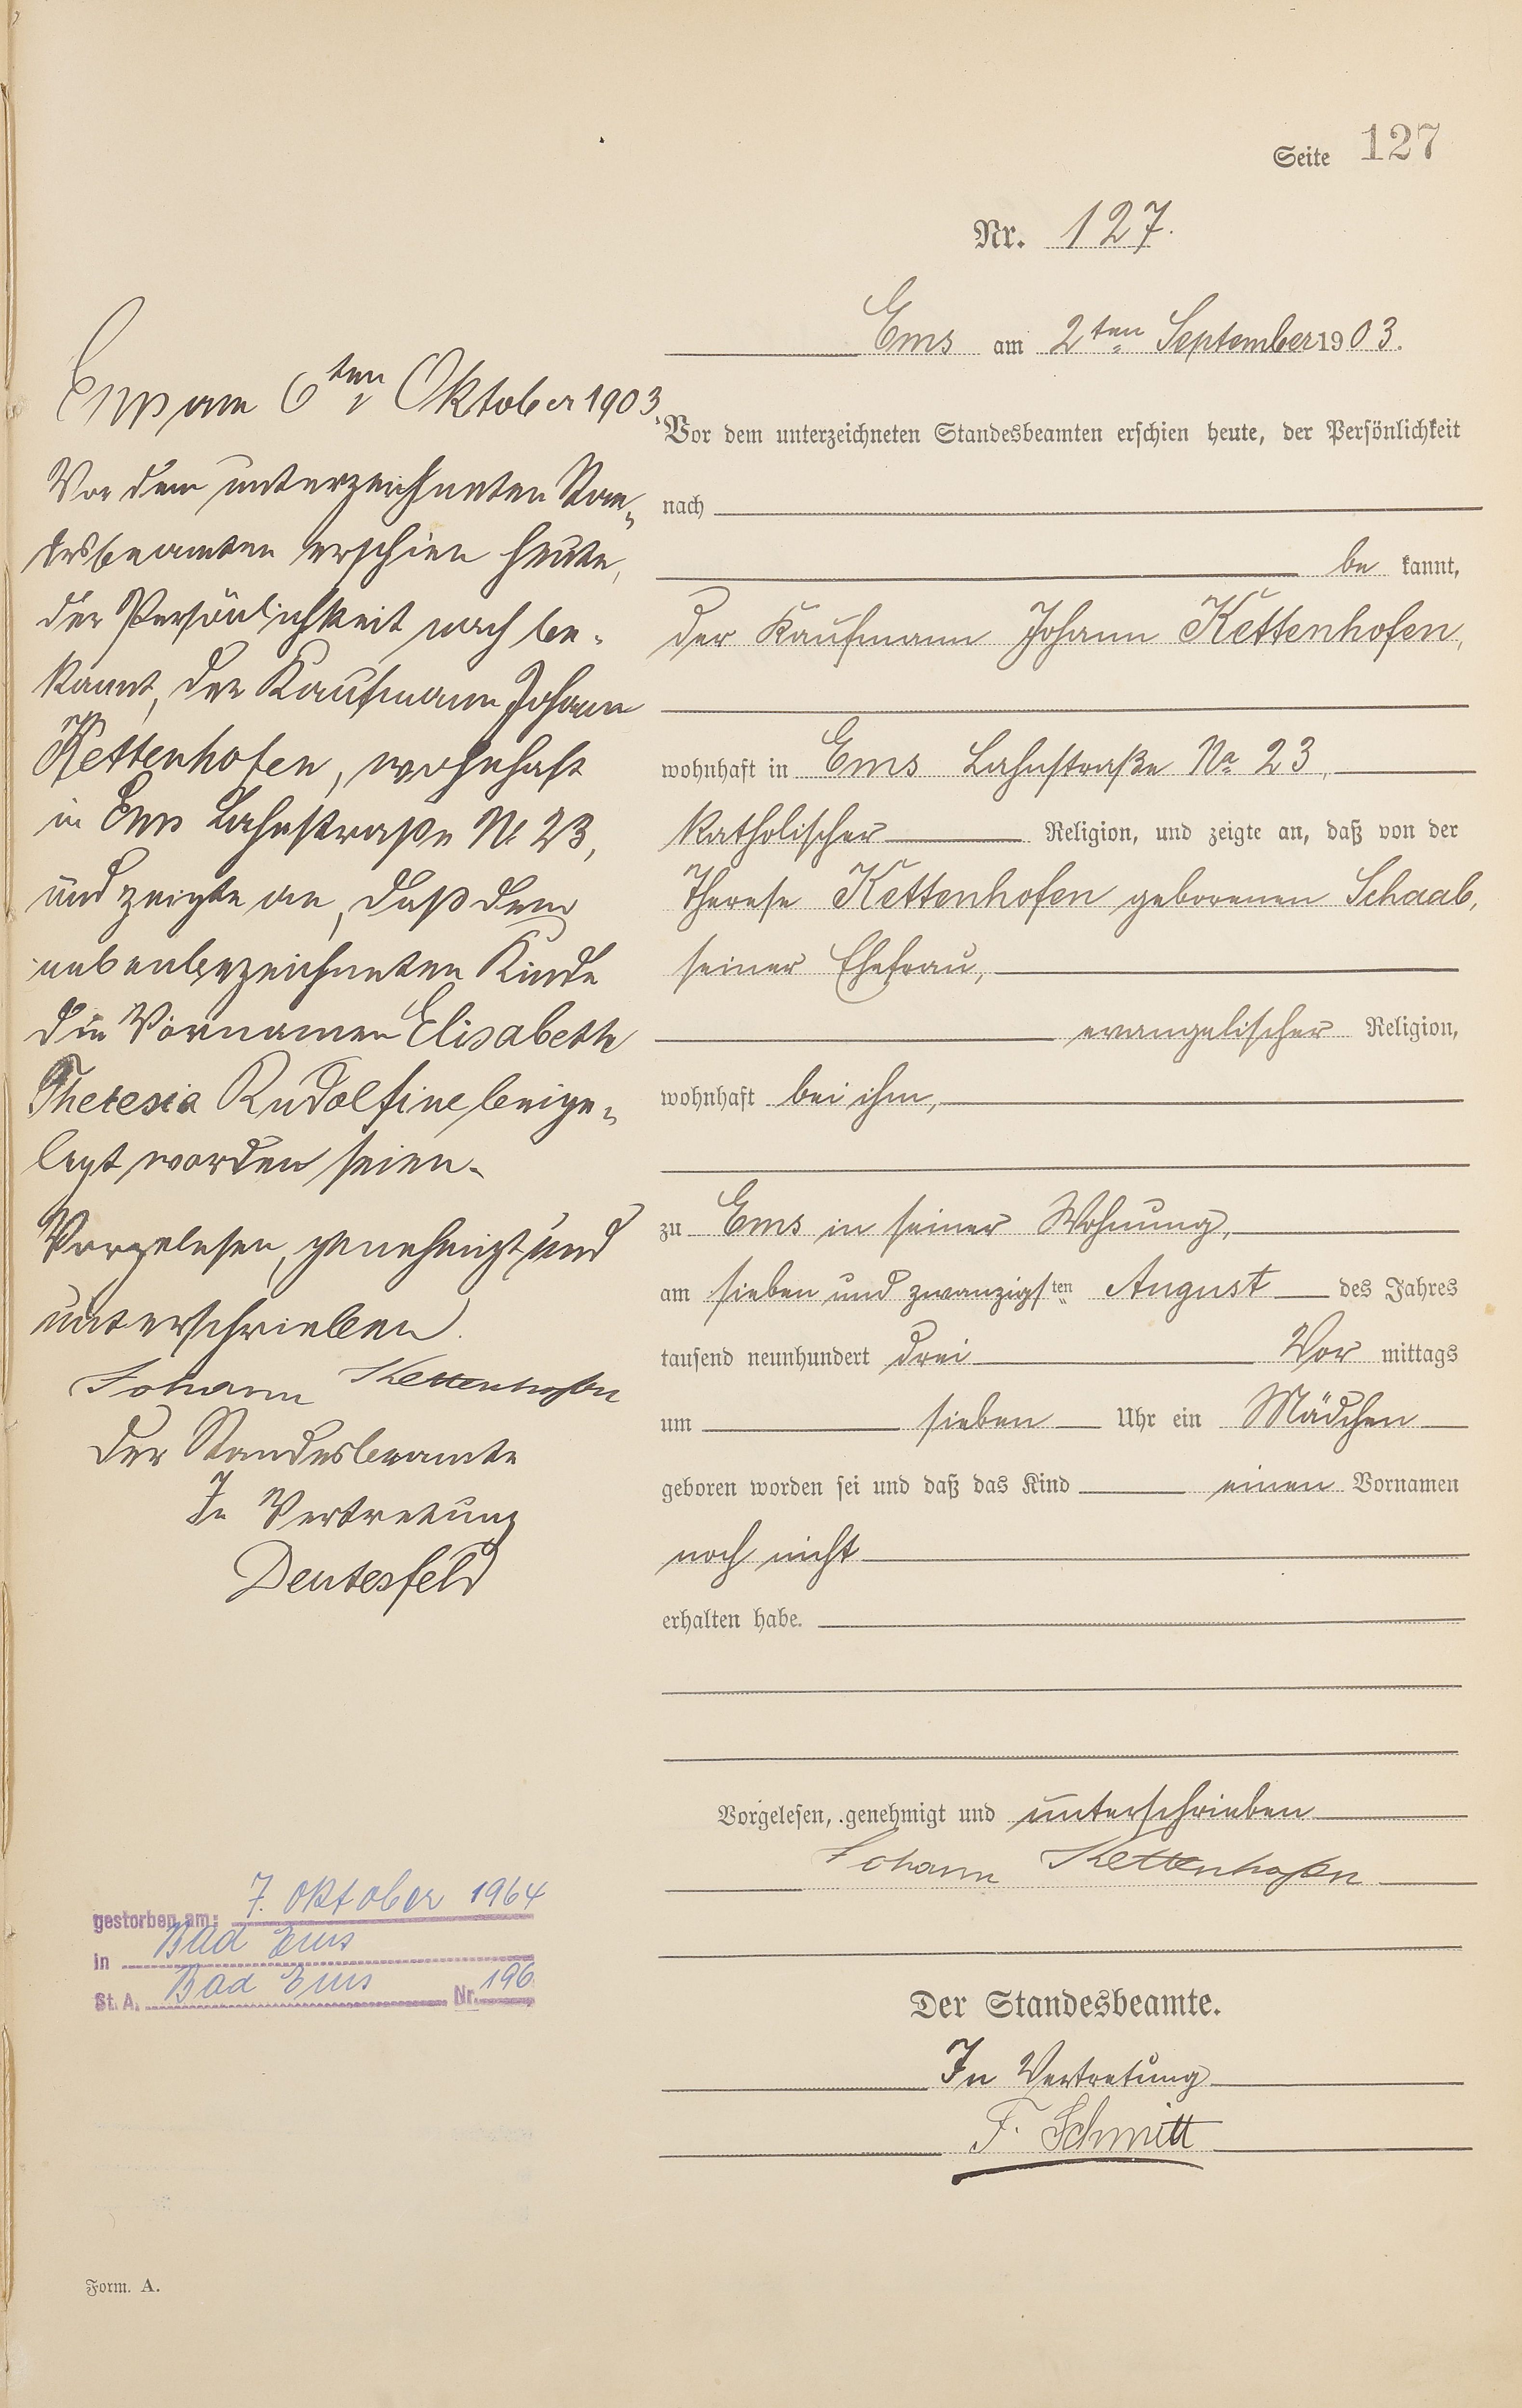 Seite 127
Nr. 127.
Ems am 2ten September 1903.
Vor dem unterzeichneten Standesbeamten erschien heute, der Persönlichkeit
nach
be kannt,
der Kaufmann Johann Kettenhofen,
wohnhaft in Ems Lahnstraße No 23,
katholischer Religion, und zeigte an, daß von der
Therese Kettenhofen geborenen Schaab,
seiner Ehefrau,
evangelischer Religion,
wohnhaft bei ihm,
zu Ems in seiner Wohnung,
am sieben und zwanzigsten August des Jahres
tausend neunhundert drei Vor mittags
um sieben Uhr ein Mädchen
geboren worden sei und daß das Kind einen Vornamen
noch nicht
erhalten habe.
Vorgelesen, genehmigt und unterschrieben
Johann Kettenhofen
Der Standesbeamte.
In Vertretung
F. Schmitt
Ems am 6ten Oktober 1903.
Vor dem unterzeichneten Stan-
desbeamten erschien heute,
der Persönlichkeit nach be-
kannt, der Kaufmann Johann
Kettenhofen, wohnhaft
in Ems Lahnstraße No 23,
und zeigte an, daß dem
nebenbezeichneten Kinde
die Vornamen Elisabeth
Theresia Rudolfine beige-
legt worden seien.
Vorgelesen, genehmigt und
unterschrieben.
Johann Kettenhofen
Der Standesbeamte
In Vertretung
Deutesfeld
gestorben am: 7. Oktober 1964
in Bad Ems
St. A. Bad Ems Nr. 196
Form. A.